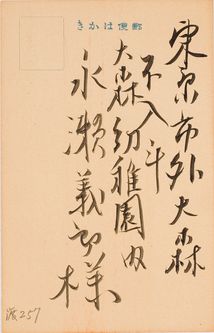 きかは便郵
東京市外大森
不入斗
大森幼稚園内
永瀬義郎様
波257